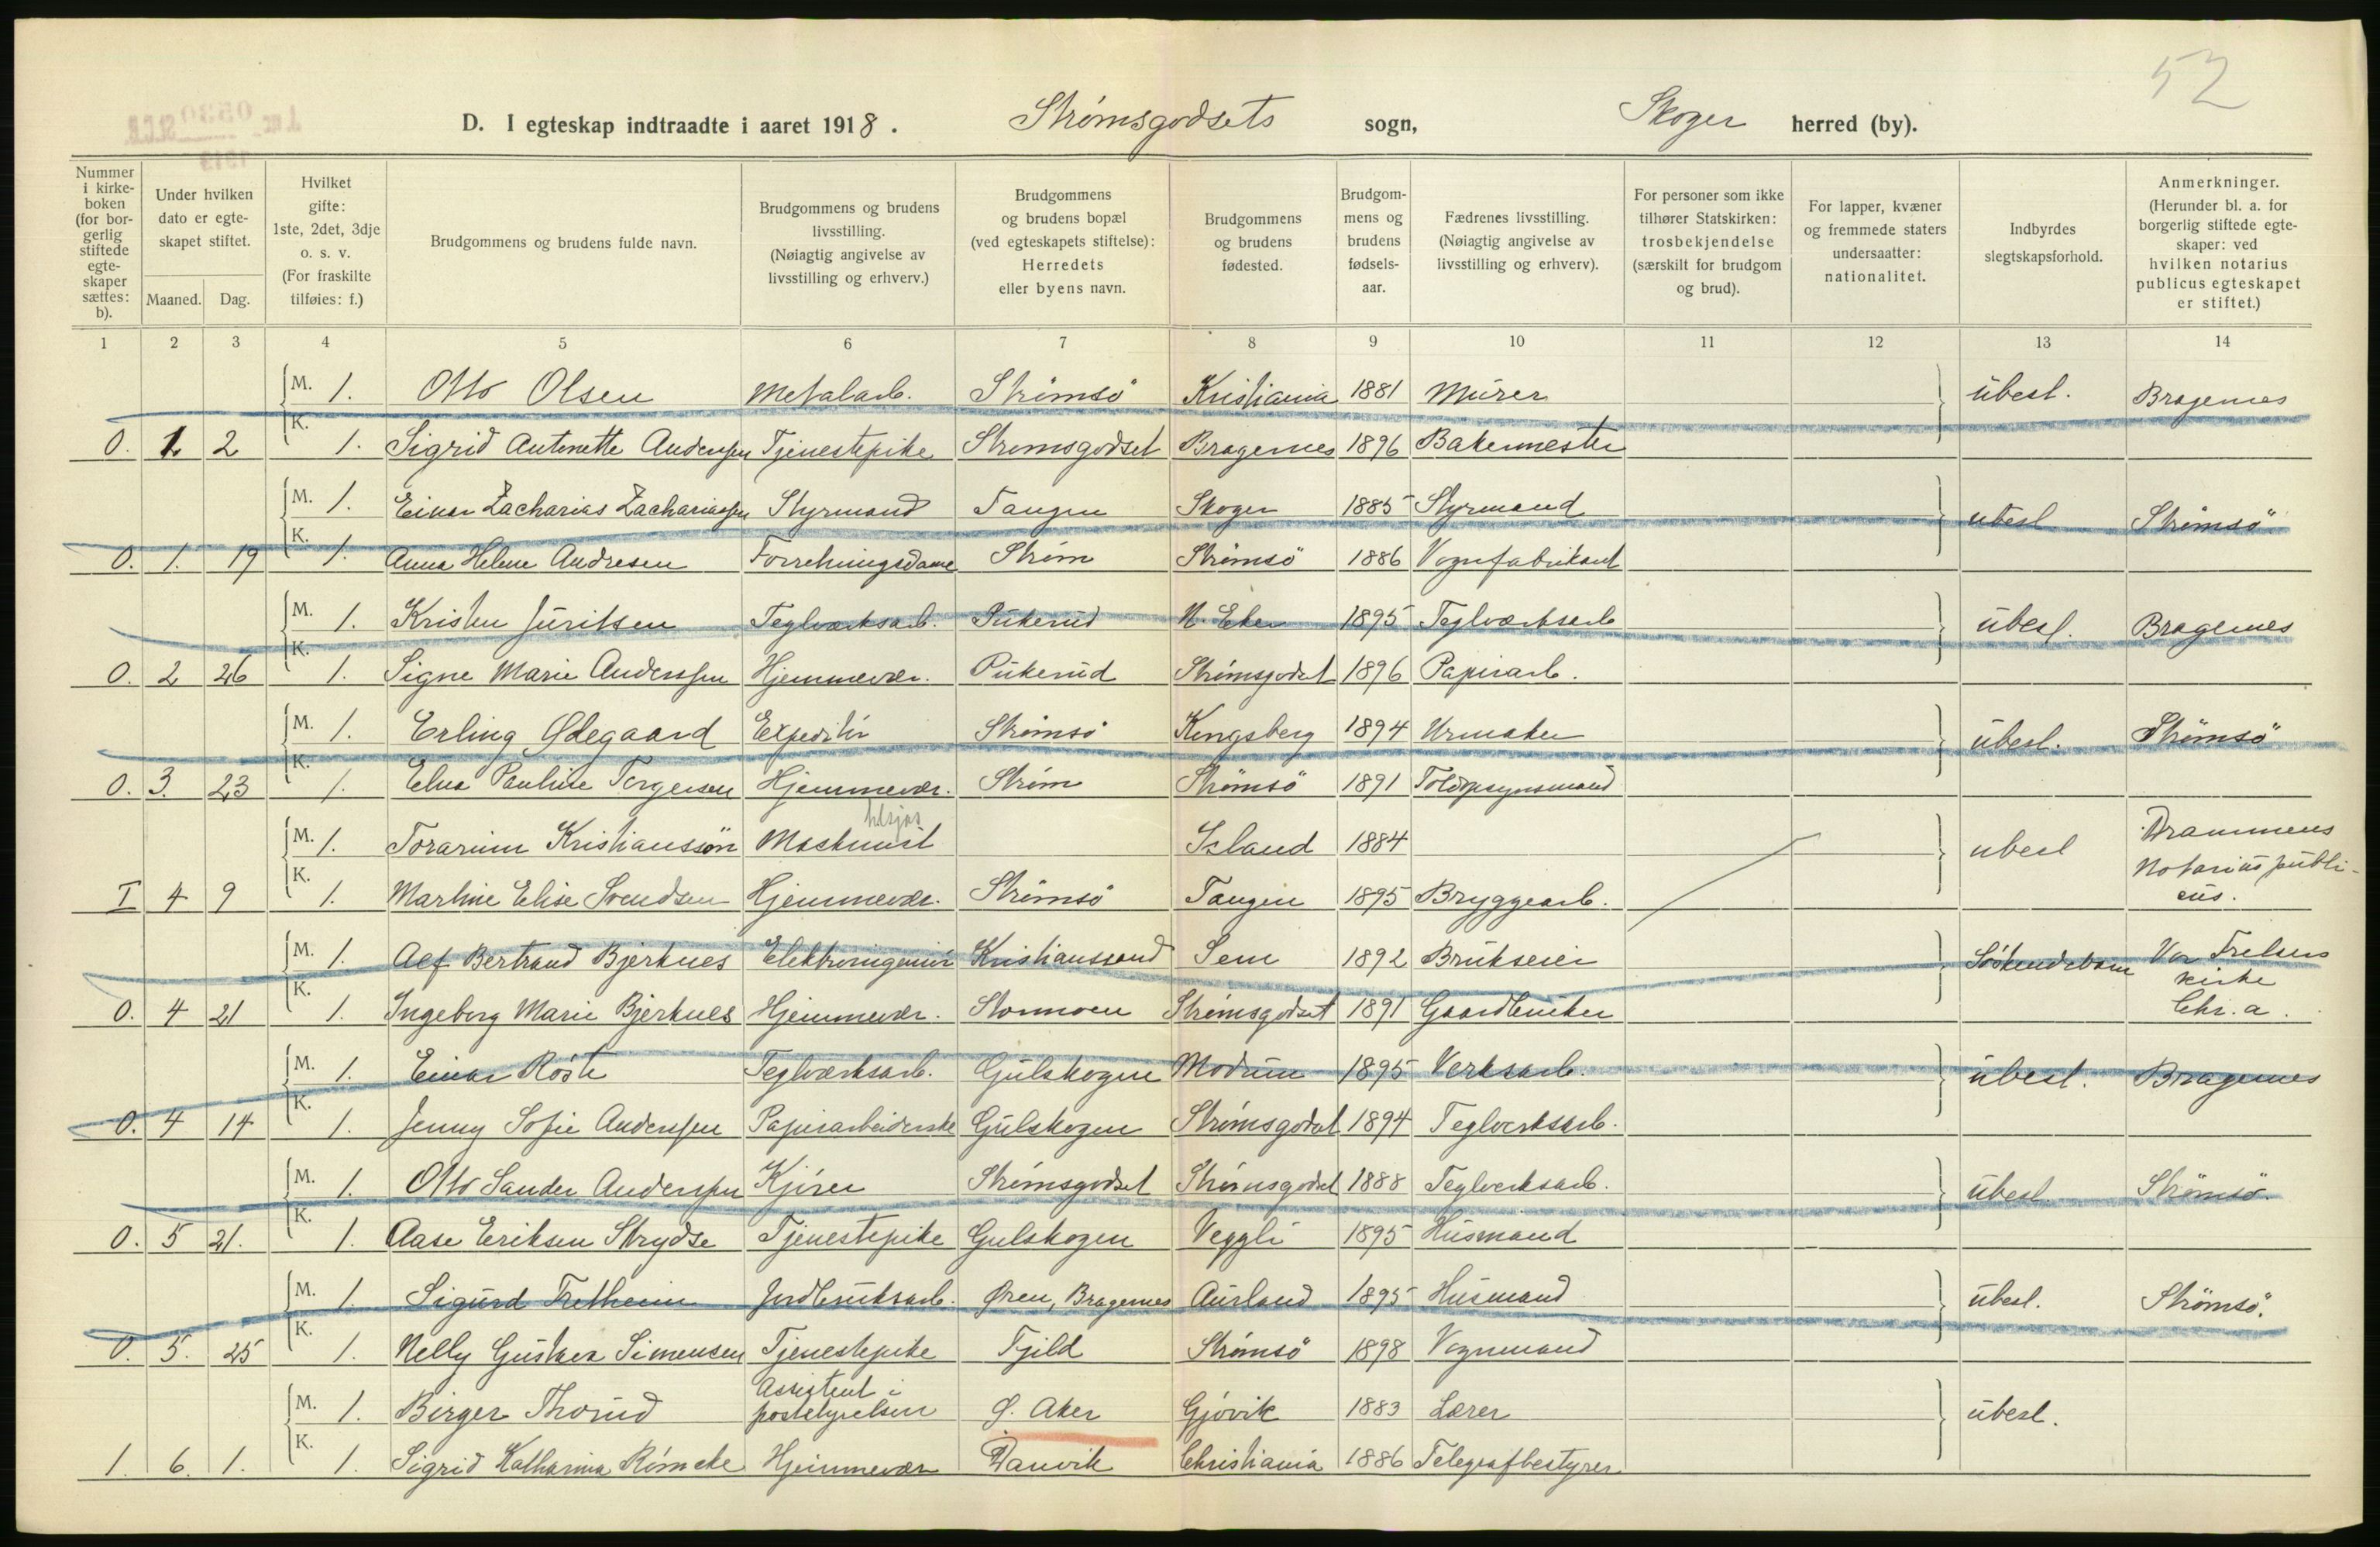 52
D. I egteskap indtraadte i aaret 1918. Strømsgodsets sogn, Skoger herred (by).
Nummer i kirkeboken (for borgerlig stiftede egteskaper sættes: b).
Under hvilken dato er egteskapet stiftet.
Maaned. Dag.
Hvilket gifte: 1ste, 2det, 3dje o. s. v. (For fraskilte tilføies: f.)
Brudgommens og brudens fulde navn.
Brudgommens og brudens livsstilling. (Nøiagtig angivelse av livsstilling og erhverv.)
Brudgommens og brudens bopæl (ved egteskapets stiftelse): Herredets eller byens navn.
Brudgommens og brudens fødested.
Brudgommens og brudens fødselsaar.
Fædrenes livsstilling. (Nøiagtig angivelse av livsstilling og erhverv).
For personer som ikke tilhører Statskirken: trosbekjendelse (særskilt for brudgom og brud).
For lapper, kvæner og fremmede staters undersaatter: nationalitet.
Indbyrdes slegtskapsforhold.
Anmerkninger. (Herunder bl. a. for borgerlig stiftede egteskaper: ved hvilken notarius publicus egteskapet er stiftet.)
1 2 3 4 5 6 7 8 9 10 11 12 13 14
M. 1. Otto Olsen Metalarb. Strømsö Kristiania 1881 Murer ubesl. Bragernes
0. 1. 2 K. 1. Sigrid Antonette Anderssen Tjenestepike Strømsgodset Bragernes 1896 Bakermester
M. 1. Einar Zacharias Zachariassen Styrmand Tangen Skoger 1885 Styrmand ubesl Strömsö
0. 1. 19 K. 1. Anna Helene Andresen Forretningsdame Strøm Strömsö 1886 Vognfabrikant
M. 1. Kristen Juritsen Teglværksarb. Pukerud N. Eker 1895 Teglværksarb ubesl. Bragernes
0. 2 26 K. 1. Signe Marie Anderssen Hjemmevær. Pukerud Strømsgodset 1896 Papirarb.
M. 1. Erling Ødegaard Expeditör Strømsö Kongsberg 1894 Urmaker ubesl. Strömsö
0. 3. 23 K. 1. Elna Pauline Torgersen Hjemmevær. Strøm Strömsö 1891 Toldopsynsmand
M. 1. Torarinn Kristianssön Maskinist Island 1884 ubesl Drammens
I 4 9 K. 1. Martine Elise Svendsen Hjemmevær. Strømsö Tangen 1895 Bryggearb. Notarius publi-
cus.
M. 1. Alf Bertrand Bjerknes Elektroingeniör Kristianssand Sem 1892 Brukseier Söskendebarn Vor Frelsers
kirke
0. 4 21 K. 1. Ingeborg Marie Bjerknes Hjemmevær. Stormoen Strømsgodset 1891 Gaardbruker Chr.a.
M. 1. Einar Röste Teglværksarb. Gulskogen Modum 1895 Verksarb. ubesl. Bragernes
0. 4 14 K. 1. Jenny Sofie Anderssen Papirarbeiderske Gulskogen Strømsgodset 1894 Teglverksarb.
M. 1. Otto Sander Anderssen Kjörer Strømsgodset Strømsgodset 1888 Teglverksarb. ubesl. Strömsö
0. 5 21. K. 1. Aase Eriksen Strydse Tjenestepike Gulskogen Veggli 1895 Husmand
M. 1. Sigurd Fretheim Jordbruksarb. Øren, Bragernes Aurland 1895 Husmand ubesl. Strömsö.
0. 5. 25 K. 1. Nelly Gustava Simensen Tjenestepike Fjild Strømsö 1898 Vognmand
Assistent i
M. 1. Birger Thorud poststyrelsen Ø. Aker Gjövik 1883 Lærer ubesl.
1. 6. 1. K. 1. Sigrid Katharina Römcke Hjemmevær Danvik Christiania 1886 Telegrafbestyrer